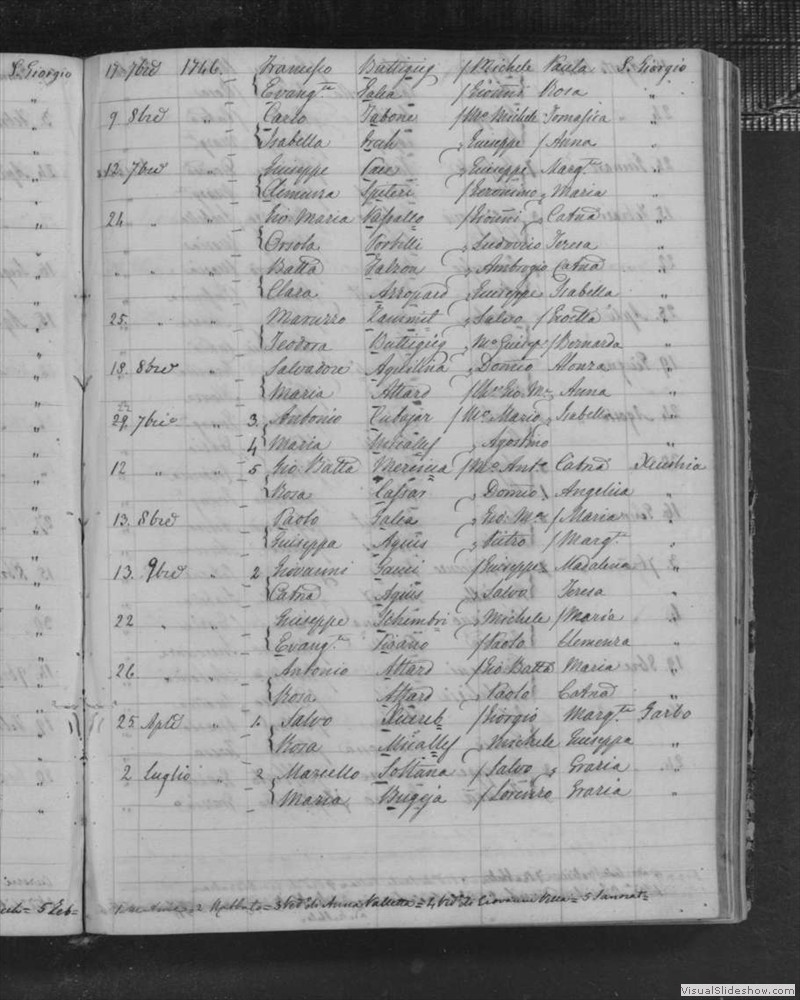 S. Giorgio
17. 7bre 1746. Francesco Buttigieg / Michele Paula S. Giorgio
Evang.ta Galea / Giovni Rosa "
9 8bre " Carlo Vabone / Mo. Michele Tomasica "
Isabella " Giuseppe / Anna "
12. 7bre " Giuseppe " Giuseppe Marg.ta "
Clemenza Spiteri / Geronimo " Maria "
24 " " Gio Maria Vassallo / Giovni " Catna "
Orsola Portelli " Ludovico Teresa "
" " " Batta Falzon " Ambrogio Catna "
Clara " Giuseppe Isabella "
25. " " Xammit " Salvo "
Teodora Buttigieg " Mo Giusep / Bernarda "
18. 8bre " Salvadore Aquilina " Domco Alonza "
Maria Attard / Mo Gio Ma Anna "
29 7bre " 3 Antonio Cutajar / Mo Mario " Isabella "
4 Maria Micallef " Agostino "
12 " " 5 Gio Batta Mercieca / Mo Anto Catna Xeuchia
Rosa Cassar " Domco / Angelica "
13. 8bre " Paolo Galea " Gio Ma / Maria "
Giuseppa Agius " Pietro / Marg.ta "
13. 9bre " 2 Giovanni Gauci / Giuseppe Madalena "
Catna Agius " Salvo Teresa "
22 " " Giuseppe Schembri " Michele / Maria "
Evang.ta Pisano / Paolo Clemenza "
26 " " Antonio Attard / Gio Batta Maria "
Rosa Attard " Paolo Catna "
25 Aple " 1 Salvo / Giorgio Marg.ta Garbo
Rosa Micallef " Michele Giuseppa "
2 Luglio " 2 Marcello Soltana / Salvo " Grazia "
Maria Bugeja / Lorenzo Grazia "
5 Feb= 3 Ved. di Anna = 4 Vid. di Giovanni = 5
VisualSlideshow.com